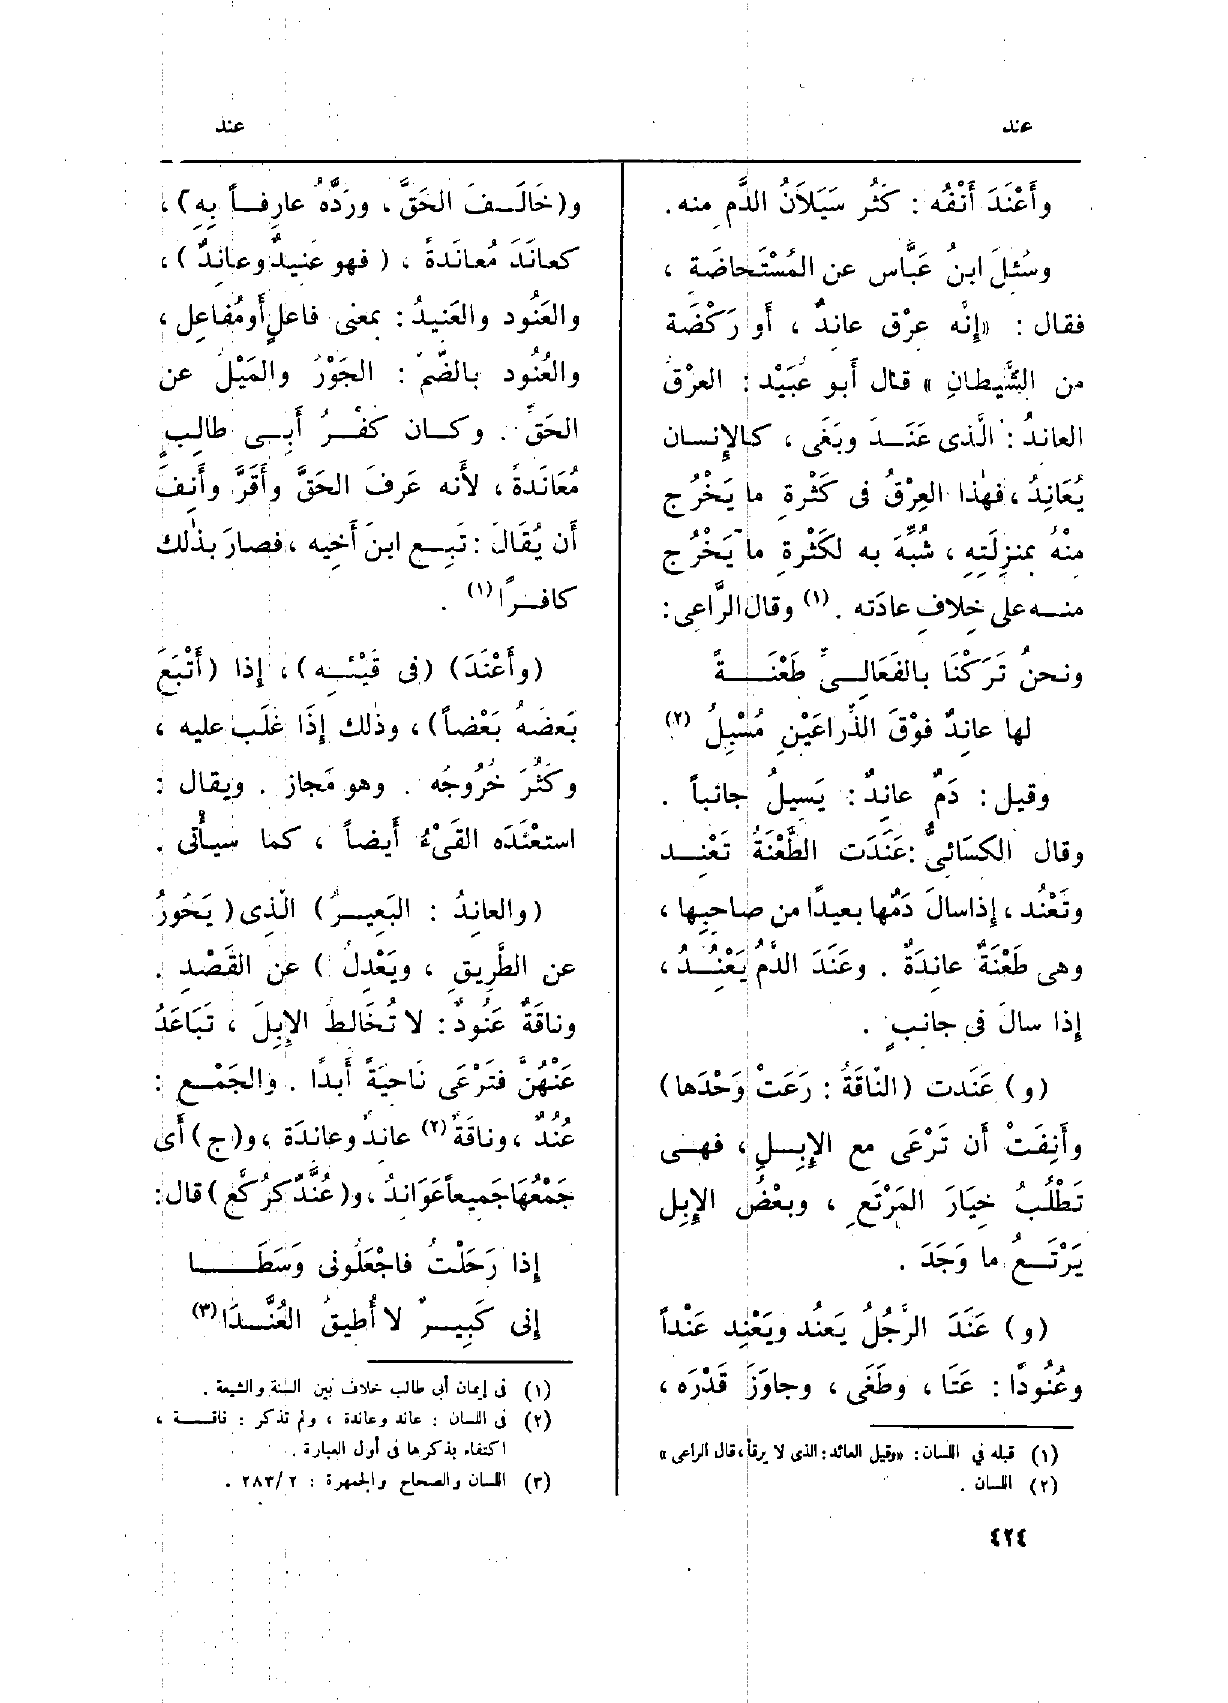 عند
عند
وأَعْنَدَ أَنْفُه : كَثُر سَيَلاَنُ الدَّمِ منه.
وسُئلَ ابنُ عَبَّاس عن المُسْتَحاضَة ،
فقال : «إِنَّه عِرْق عانِدٌ ، أَو رَكْضَة
من الشَّيطانِ » قال أَبو عبَيْد : العِرْقُ
العانِدُ : الَّذى عَنَــدَ وبَغَى ، كالإِنسان
يُعَانِدُ ، فهٰذا العِرْقُ فى كَثْرةِ ما يَخْرُج
مِنْهُ بمنزِلَتِهِ ، شُبِّهَ به لكَثْرةِ ما يَخْرُج
منــه على خِلافِ عادَته . (١) وقال الرَّاعِى :
ونحنُ تَرَكْنَا بالفَعَالِــىِّ طَعْنَـــةً
لها عانِدٌ فوْقَ الذِّراعَيْنِ مُسْبِلُ (٢)
وقيل : دَمٌ عانِدٌ : يَسِيلُ جانِباً .
وقال الكِسَائىُّ :عَنَدَت الطَّعْنَةُ تَعْنِــد
وتَعْنُد ، إِذا سالَ دَمُها بعيدًا من صاحِبِها ،
وهى طَعْنَةٌ عانِدَةٌ . وعَنَدَ الدَّمُ يَعْنُــدُ ،
إِذا سالَ فى جانِبٍ .
(و) عَنَدت (النَّاقَةُ : رَعَتْ وَحْدَها)
وأَنِفَتْ أَن تَرْعَى مع الإِبــلِ ، فهــى
تَطْلُبُ خِيَارَ المَرْتَع ِ ، وبعْضُ الإِبِل
يَرْتَــعُ ما وَجَدَ .
(و) عَنَدَ الرَّجُلُ يَعنُد ويَعْنِد عَنْداً
وعُنُودًا : عَتَا ، وطَغَى ، وجاوَزَ قَدْرَه ،
(١) قبله في اللسان: «وقيل العاند: الذى لا يرقأ، قال الراعى»
(٢) اللسان .
و(خَالَــفَ الحَقَّ ، ورَدَّهُ عارِفــاً بِهِ) ،
كعانَدَ مُعانَدةً ، ( فهو عَنِيدٌ وعانِدٌ ) ،
والعَنُود والعَنِيدُ : بمعنى فاعلٍ أَو مُفاعِل ،
والعُنُود بالضّم : الجَوْرُ والمَيْلُ عن
الحَقِّ . وكــان كفْــرُ أَبِــى طالِبٍ
مُعَانَدةً ، لأَنه عَرفَ الحَقَّ وأَقَرَّ وأَنِفَ
أَن يُقَالَ : تَبِــع ابنَ أَخِيه ، فصارَ بذٰلك
كافــرًا (١) .
(وأَعْنَدَ) (فى قَيْئــه) ، إِذا (أَتْبَعَ
بَعضَهُ بَعْضاً) ، وذٰلك إِذَا غَلَب عليه ،
وكَثُرَ خُرُوجُه . وهو مَجاز . ويقال :
استَعْنَدَه القَىْءُ أَيضاً ، كما سيأْتى .
(والعانِدُ : البَعِيــرُ) الَّذِى ( يَحُورُ
عن الطَّرِيقِ ، ويَعْدِلُ ) عن القَصْدِ .
وناقَةٌ عَنُودٌ : لا تُخَالطُ الإِبِلَ ، تَبَاعَدُ
عَنْهُنَّ فتَرْعَى نَاحِيَةً أَبدًا . والجَمْــع :
عُنُدٌ ، وناقَةٌ (٢) عانِدٌ وعانِدَة ، و(ج) أَى
جَمْعُهَا جَمِيعاً عَوَانِدُ ، و( عُنَّدٌ كرُكَّع ) قال :
إذا رَحَلْتُ فاجْعَلُونى وَسَطَــا
إنى كَبِيــرٌ لا أُطِيقُ العُنَّــدَا (٣)
(١) فى إيمان أبى طالب خلاف بين السنة والشيعة .
(٢) فى اللسان : عاند وعاندة ، ولم تذكر : ناقــة ،
اكتفاء بذكرها فى أول العبارة .
(٣) اللسان والصحاح والجمهرة : ٢ /٢٨٣ .
٤٢٤